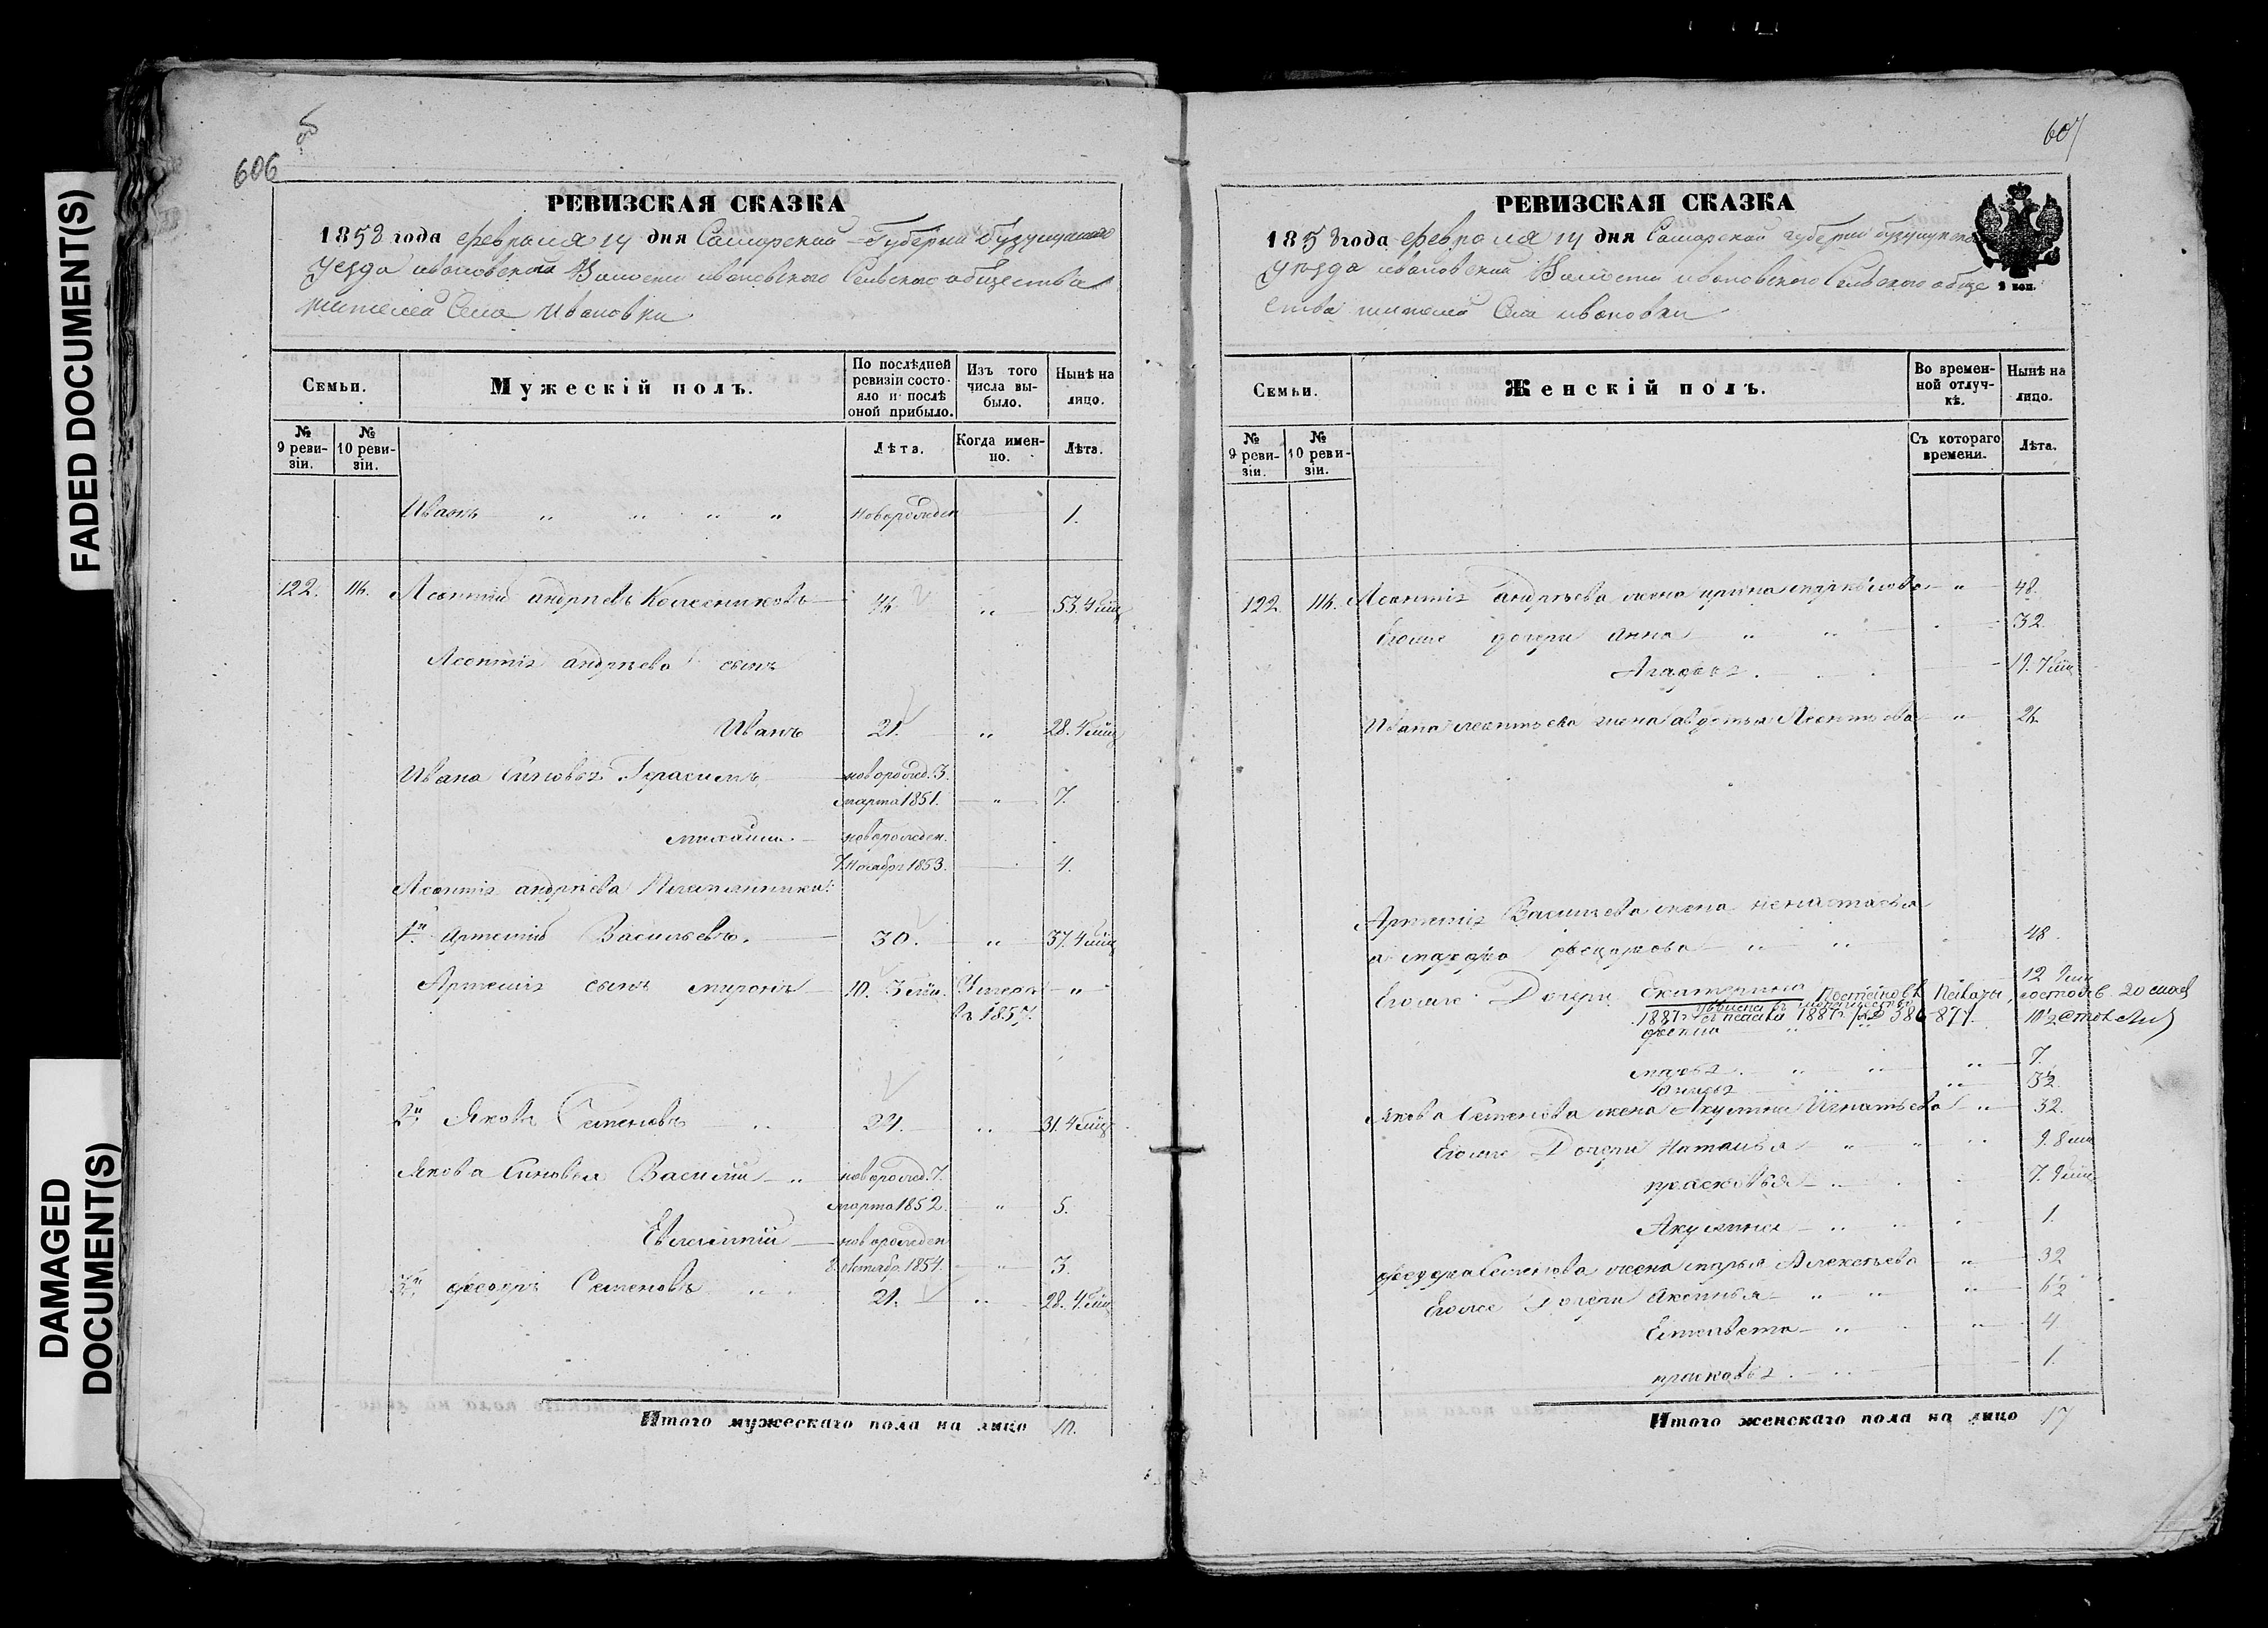 FADED DOCUMENT(S)
DAMAGED
DOCUMENT(S)
606
РЕВИЗСКАЯ СКАЗКА
1858 года февраля 14 дня Самарской Губернии Бузулукскаго
Уезда ивановской Волости ивановского Сельского общества
жителей Села Ивановки
Семьи.
Мужескій полъ.
По послѣдней ревизіи состояло и послѣ оной прибыло.
Изъ того числа выбыло.
Нынѣ на лицо.
№ 9 ревизіи.
№ 10 ревизіи.
Лѣта.
Когда именно.
Лѣта.
Иванъ " " " " новорожден 1.
122. 116. Леонтий андреевъ Колесниковъ 46 " 53.4 мец
Леонтія андреева сынъ
Иванъ 21. " 28.4 мец
Ивана Сыновья Герасимъ новорожд. 3.
марта 1851. " 7.
михаила новорожден.
7 Ноября 1853. 4.
Леонтія андреева Племянники:
1й Артемий Васильевъ. 30. " 37.4 мец
Артемія сынъ миронъ 10. 3 мец. Умеръ "
въ 1857.
2й Яковъ Семеновъ " 24. " 31.4 мец
Якова Сыновья Василий " новорожд. 7.
марта 1852. " 5.
Евлампий новорожден
8 Октября 1854. " 3.
3й феодоръ Семеновъ " 21. " 28.4 мец
Итого мужескаго пола на лицо 10.
607
РЕВИЗСКАЯ СКАЗКА
1858 года февраля 14 дня Самарской губернии бузулукска
Уезда ивановской Волости ивановского Сельского обще
ства жителей Села ивановки
2 коп.
Семьи.
Женскій полъ.
Во временной отлучкѣ.
Нынѣ на лицо.
№ 9 ревизіи.
№ 10 ревизіи.
Съ котораго времени.
Лѣта.
122 116. Леонтія андреева жена ирина " 48.
Егоже дочери анна " " 32.
Агафья 19. 7 мец
Ивана леонтьева жена авдотья Леонтьева " 26.
Артемія Васильева жена
марфа " " 48.
12 9 мец
Егоже Дочери Екатерина
1887 1887 г. № 386-871.
10½
марья " " " 7.
" " 3½.
Якова Семенова жена Акулина Игнатьева " 32.
Егоже Дочери Наталья " " " 9. 8 мец
прасковья " 7. 9 мец
Акулина " " 1.
феодора Семенова жена марья Алексеева " 32
Егоже Дочери Аксинья " " " 6½
Елисавета " " 4
прасковья " 1.
Итого женскаго пола на лицо 17